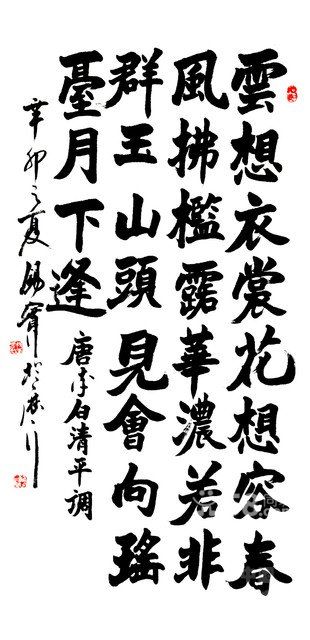 雲想衣裳花想容春
風拂檻露華濃若非
群玉山頭見會向瑤
臺月下逢
唐李白清平調
辛卯之夏